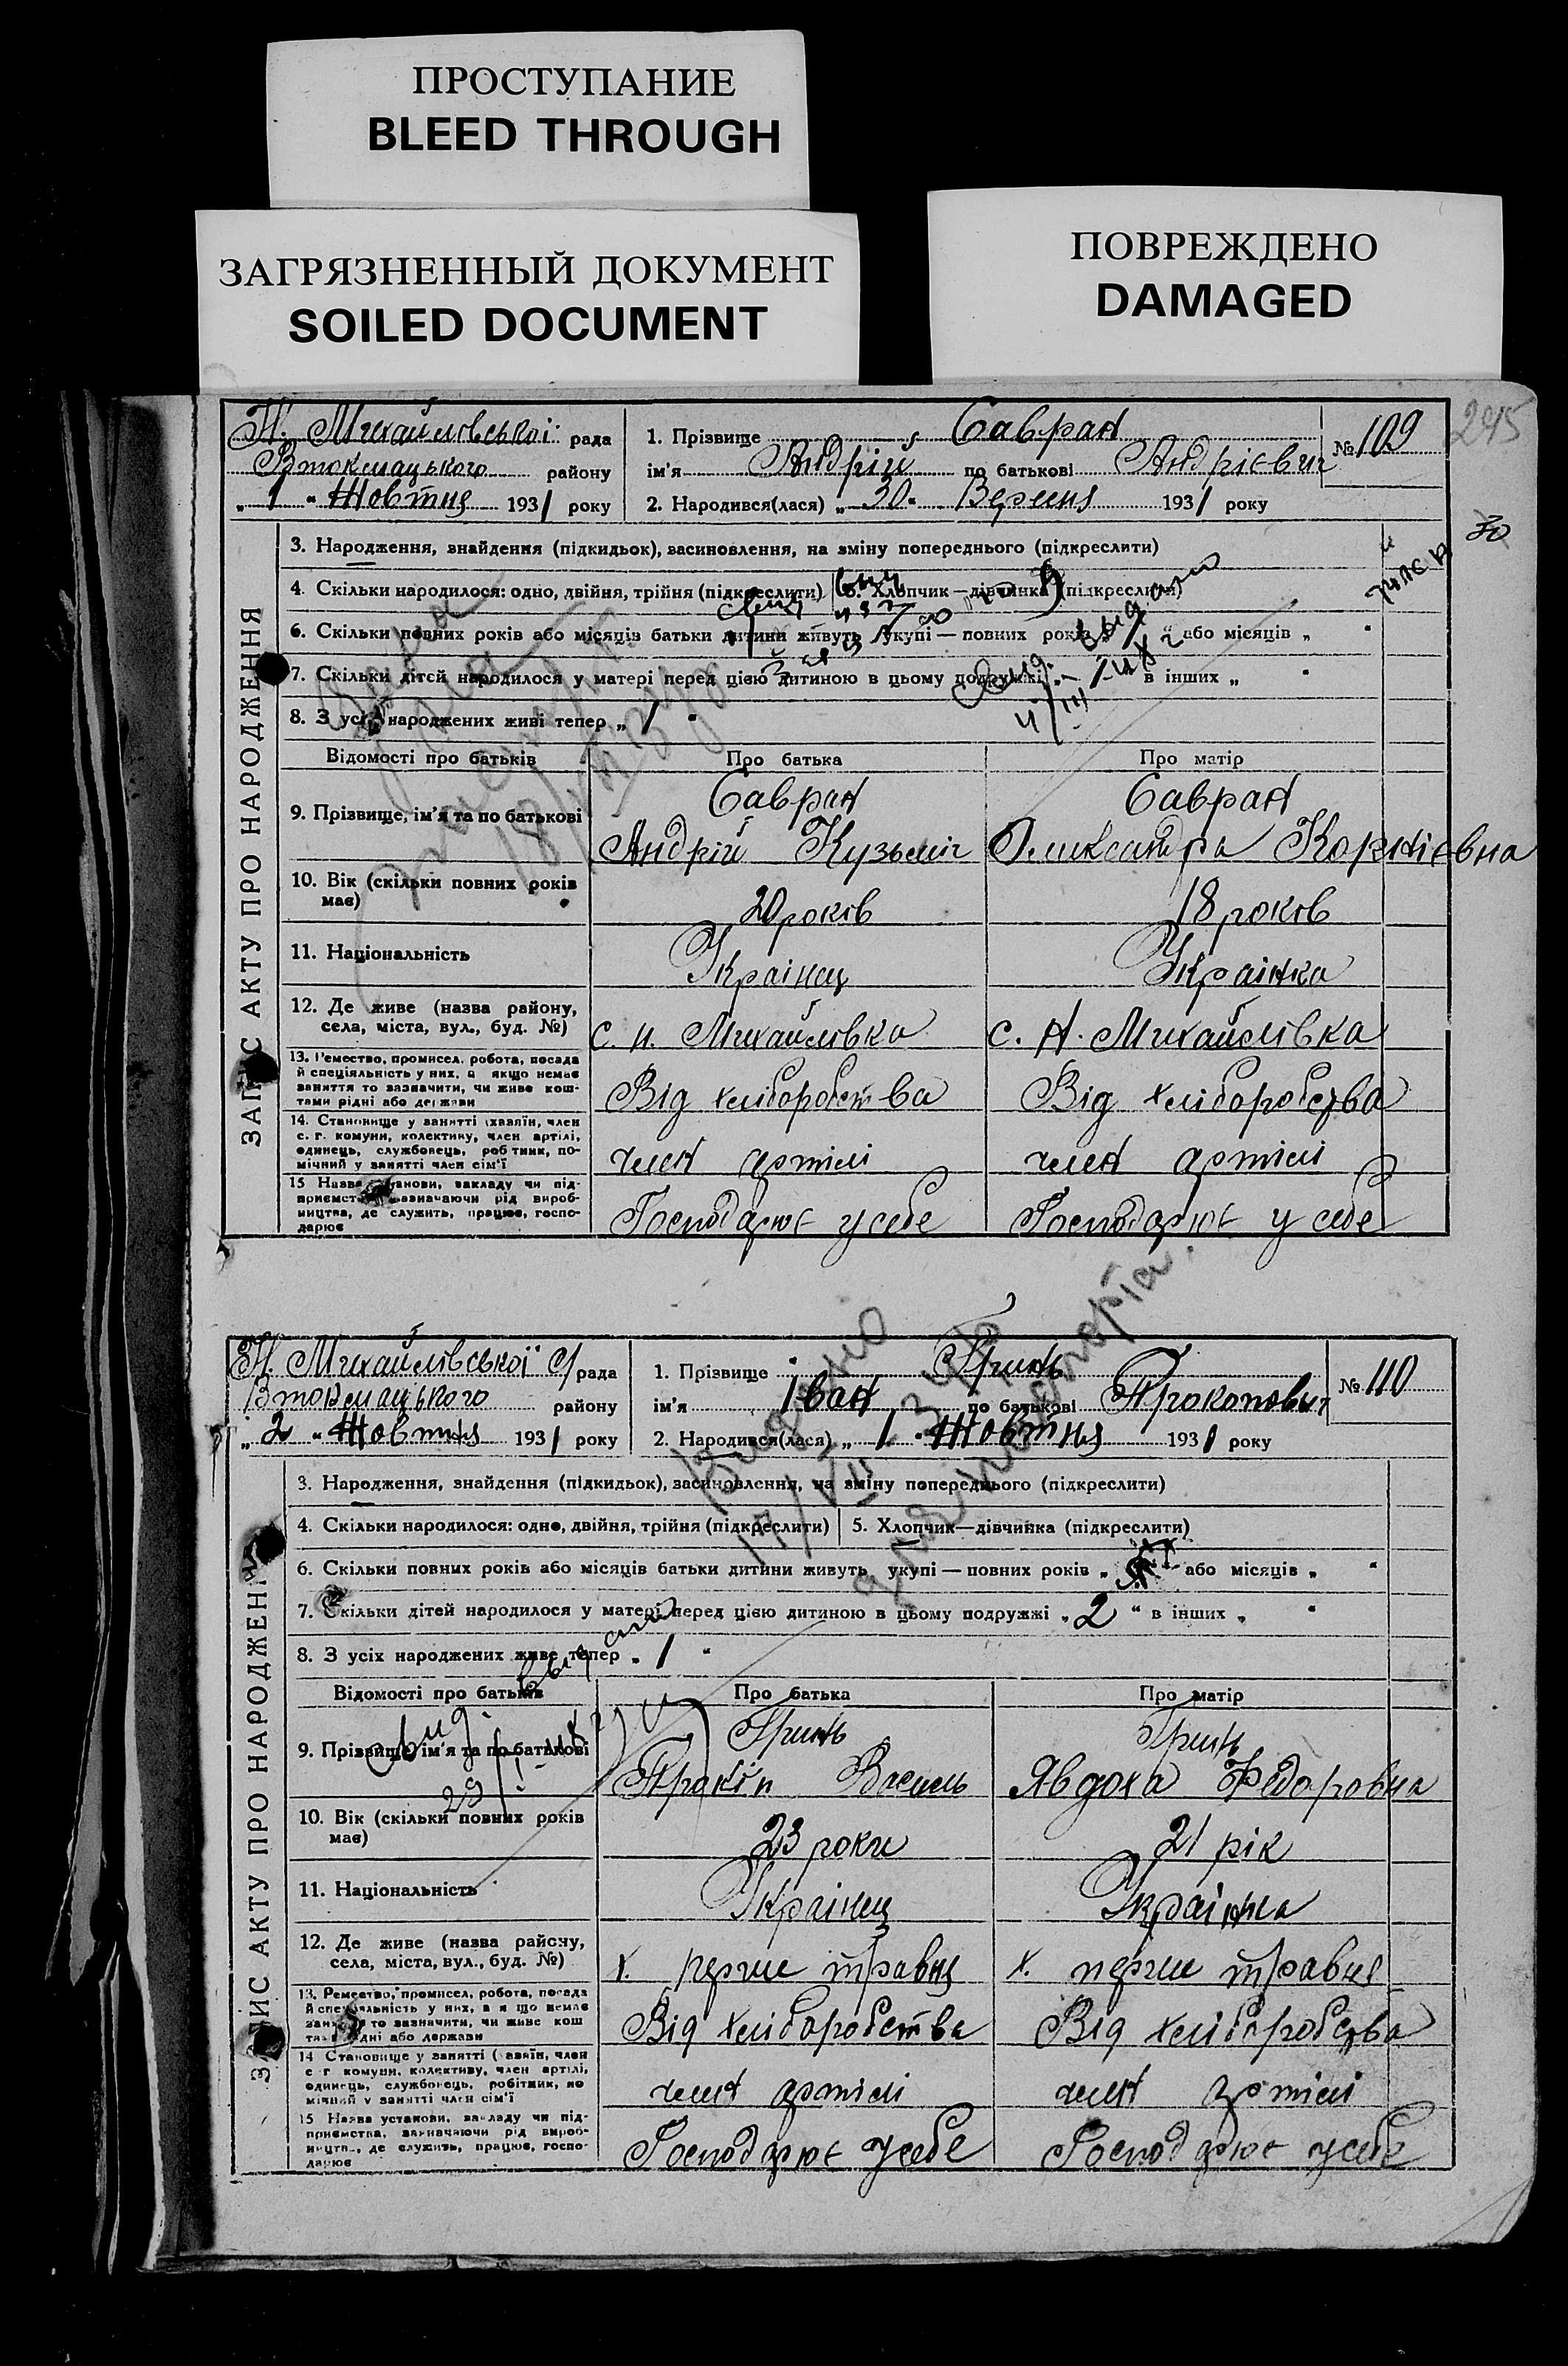 ПРОСТУПАНИЕ
BLEED THROUGH
ЗАГРЯЗНЕННЫЙ ДОКУМЕНТ
SOILED DOCUMENT
ПОВРЕЖДЕНО
DAMAGED
245
Н. Михайлівської рада
Втокмацького району
„ 1 " Жовтня 1931 року
1. Прізвище Савран
ім'я Андрій по батькові Андрієвич
2. Народився(лася) „ 30 " Версня 1931 року
№ 109
30
ЗАПИС АКТУ ПРО НАРОДЖЕННЯ
3. Народження, знайдення (підкидьок), засиновлення, на зміну попереднього (підкреслити)
4. Скільки народилося: одно, двійня, трійня (підкреслити) 5. Хлопчик—дівчинка (підкреслити)
6. Скільки повних років або місяців батьки дитини живуть укупі — повних років „ " або місяців „ "
7. Скільки дітей народилося у матері перед цією дитиною в цьому подружжі „ " в інших „ "
8. З усіх народжених живі тепер „ 1 "
Відомості про батьків Про батька Про матір
9. Прізвище, ім'я та по батькові
Савран Савран
Андрій Кузьміч Олександра Корнієвна
10. Вік (скільки повних років має) 20 років 18 років
11. Національність Українец Українка
12. Де живе (назва району, села, міста, вул., буд. №) с. Н. Михайлівка с. Н. Михайлівка
13. Ремество, промисел, робота, посада
й спеціяльність у них, а якщо немає
заняття то зазначити, чи живе кош-
тами рідні або держави
Від хліборобства Від хліборобства
14. Становище у занятті (хазяїн, член
с. г. комуни, колективу, член артілі,
одинець, службовець, робітник, по-
мічний у занятті член сім'ї
член артілі член артілі
15 Назва установи, закладу чи під-
приємства, зазначаючи рід вироб-
ництва, де служить, працює, госпо-
дарює
Господарює у себе Господарює у себе
Н. Михайлівської с/рада
Втокмацького району
„ 2 " Жовтня 1931 року
1. Прізвище Гринь
ім'я Іван по батькові Прокопович
2. Народився(лася) „ 1 " Жовтня 1931 року
№ 110
Видано
для паспорта.
ЗАПИС АКТУ ПРО НАРОДЖЕННЯ
3. Народження, знайдення (підкидьок), засиновлення, на зміну попереднього (підкреслити)
4. Скільки народилося: одно, двійня, трійня (підкреслити) 5. Хлопчик—дівчинка (підкреслити)
6. Скільки повних років або місяців батьки дитини живуть укупі — повних років „ " або місяців „ "
7. Скільки дітей народилося у матері перед цією дитиною в цьому подружжі „ 2 " в інших „ "
8. З усіх народжених живе тепер „ 1 "
Відомості про батьків Про батька Про матір
9. Прізвище, ім'я та по батькові
Гринь Гринь
Прокіп Василь Явдоха Федоровна
10. Вік (скільки повних років має) 23 роки 21 рік
11. Національність Українец Українка
12. Де живе (назва району, села, міста, вул., буд. №) х. перше травня х. перше травня
13. Ремество, промисел, робота, посада
й спеціяльність у них, а якщо немає
заняття то зазначити, чи живе кош
тами рідні або держави
Від хліборобства Від хліборобства
14 Становище у занятті (хазяїн, член
с г комуни, колективу, член артілі,
одинець, службовець, робітник, по
мічний у занятті член сім'ї
член артілі член артілі
15 Назва установи, закладу чи під-
приємства, зазначаючи рід вироб-
ництва, де служить, працює, госпо-
дарює
Господарює у себе Господарює у себе